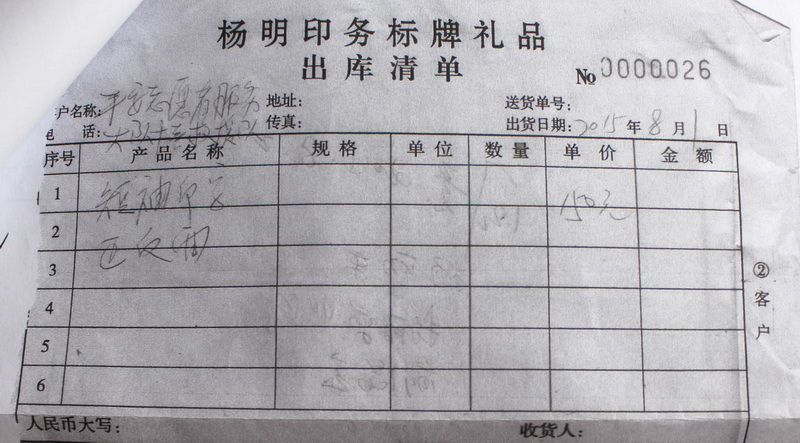 杨明印务标牌礼品
出库清单
№ 0000026
户名称: 平安志愿者服务 地址: 送货单号:
电 话: 大队 传真: 出货日期: 2015 年 8 月 1 日
序号 产品名称 规格 单位 数量 单价 金额
1 短袖印字 150元
2 正反两
3
4
5
6
②客户
人民币大写: 收货人: